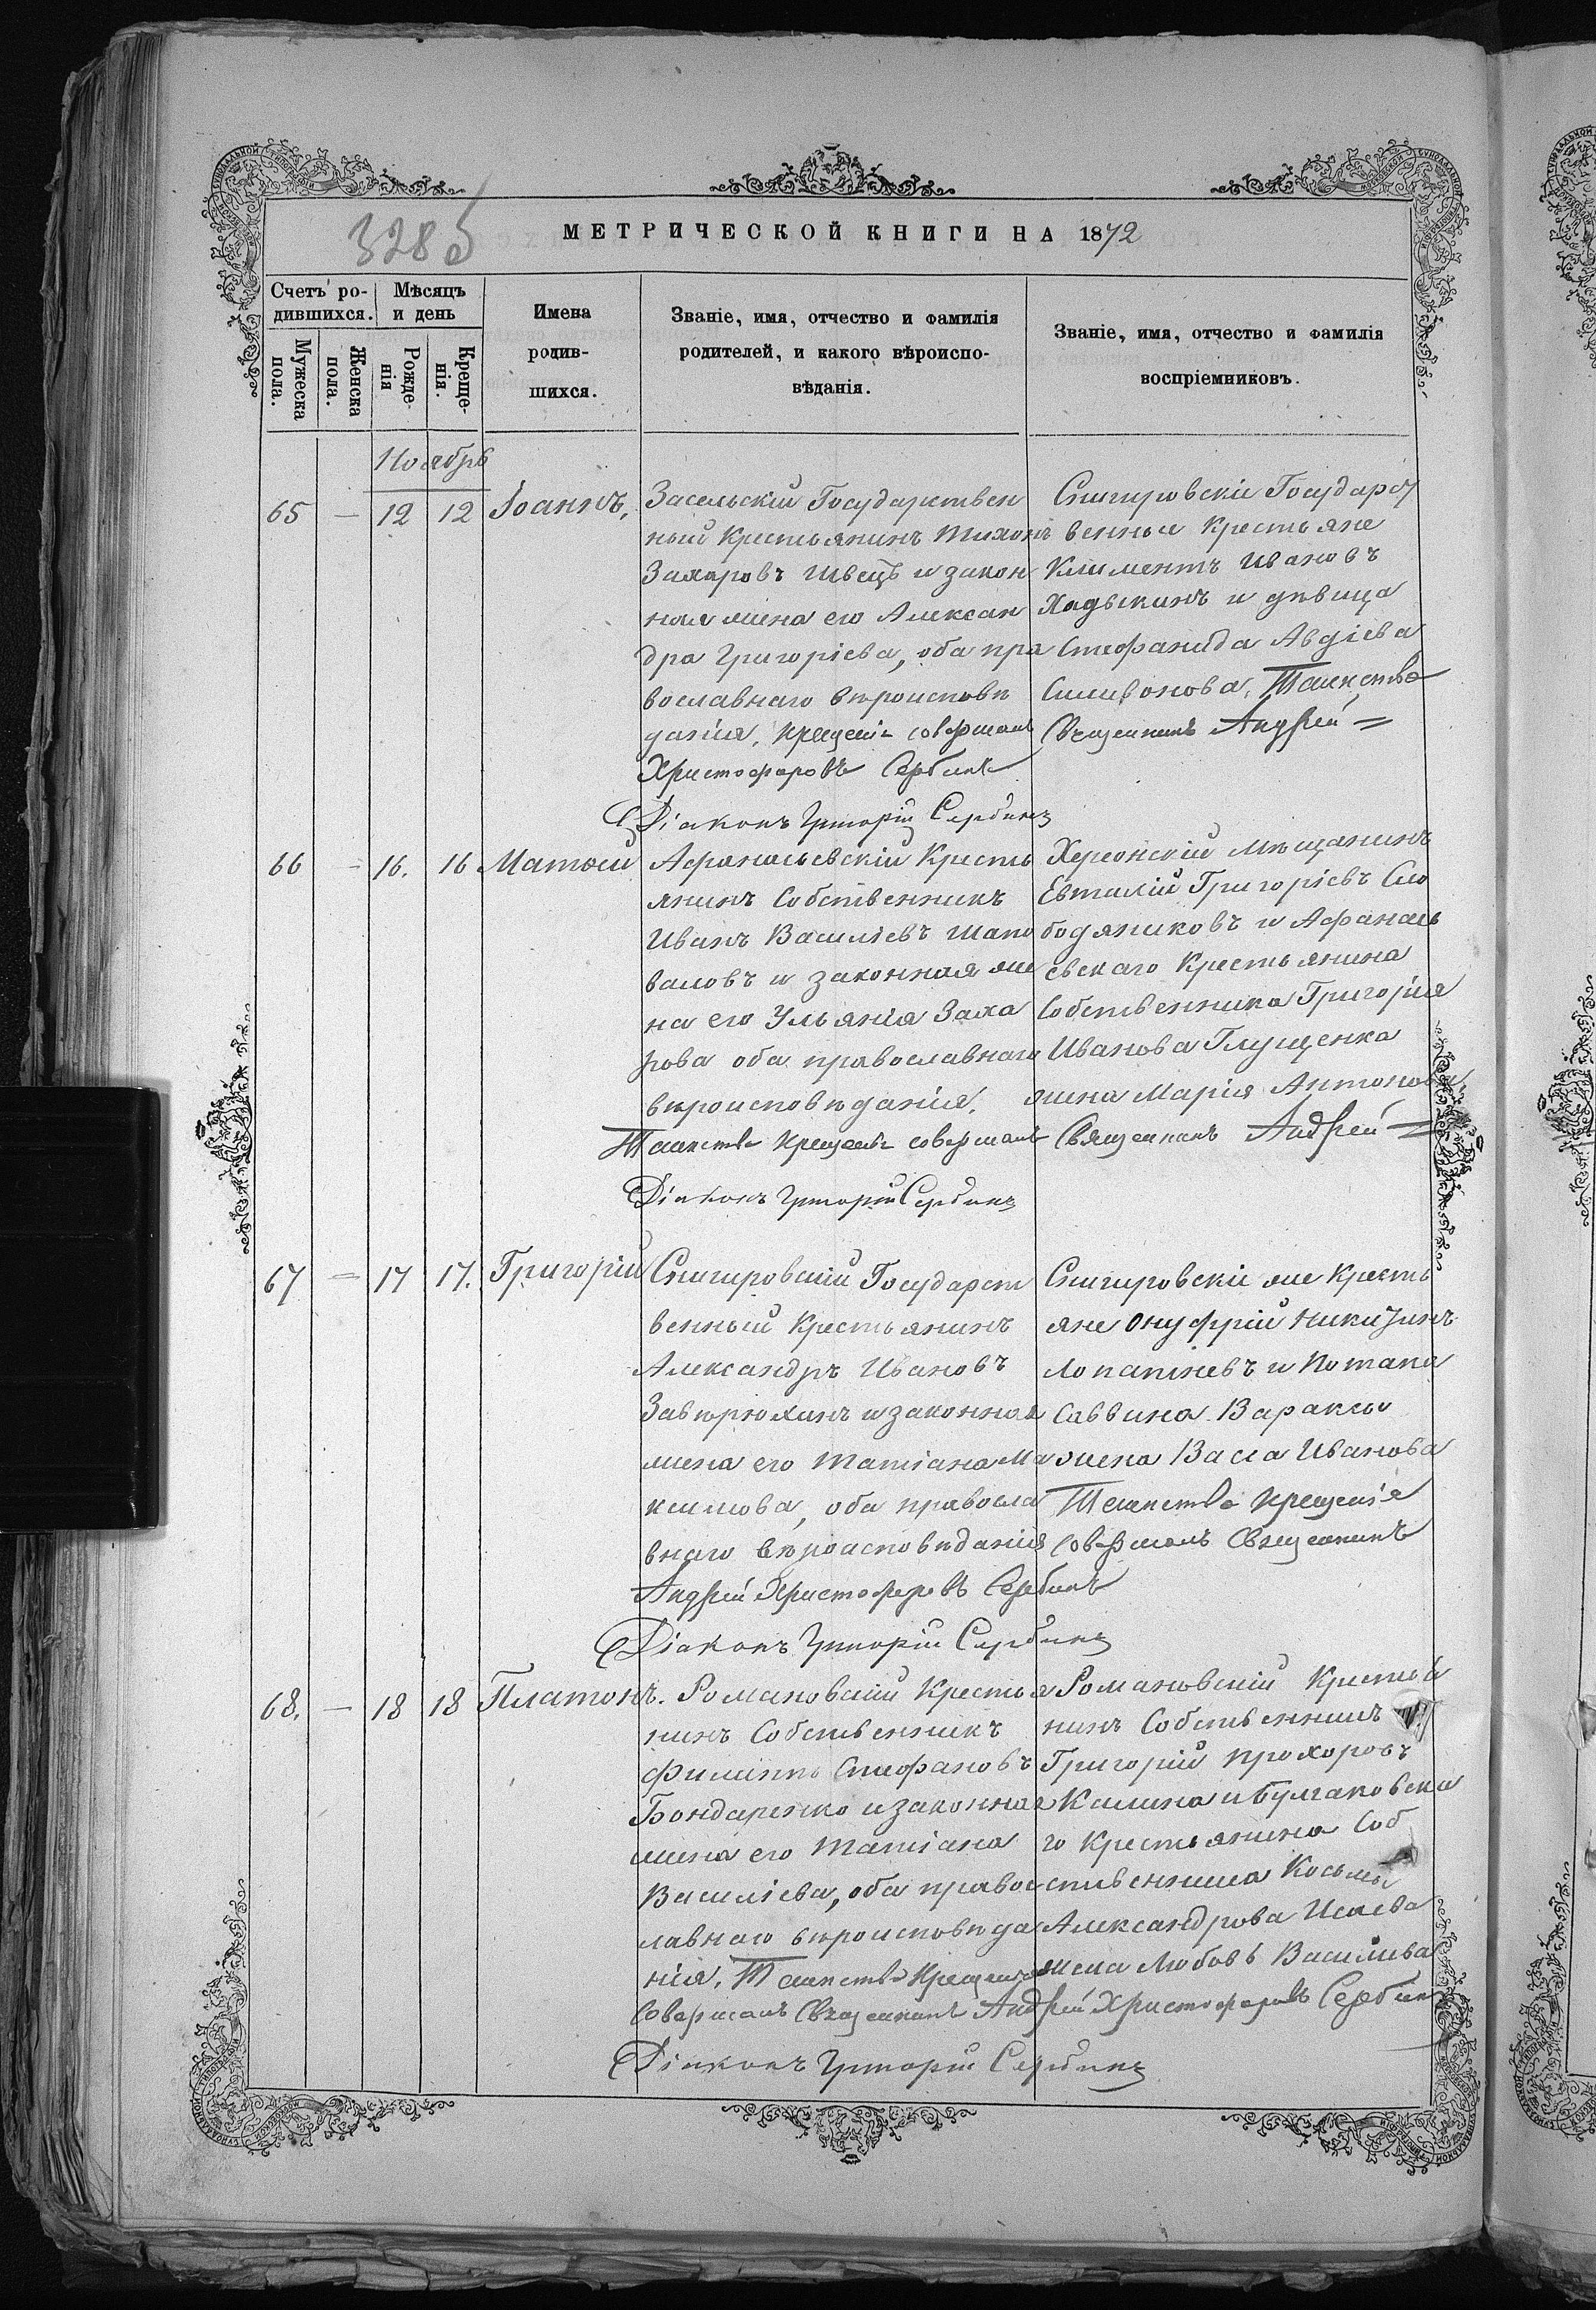 328б
МЕТРИЧЕСКОЙ КНИГИ НА 1872
Счетъ ро-
дившихся.
Мѣсяцъ
и день
Мужеска
пола.
Женска
пола.
Рожде-
нія
Креще-
нія.
Имена
родив-
шихся.
Званіе, имя, отчество и фамилія
родителей, и какого вѣроиспо-
вѣданія.
Званіе, имя, отчество и фамилія
воспріемниковъ.
Ноябрь
65 — 12 12 Іоаннъ,
Засельскій Государствен
ный Крестьянинъ Тихонъ
Захаровъ Швецъ и закон
ная жена его Алексан
дра Григоріева, оба пра
вославнаго вѣроисповѣ
данія, крещенія совершалъ
Христофоровъ Сербинъ
Діаконъ Григорій Сербинъ
Снигировскіе Государст
венные Крестьяне
Климентъ Ивановъ
и дѣвица
Стефанида Авдіева
Таинство
Священникъ Андрей =
66 - 16. 16 Матѳей
Афанасьевскій Кресть
янинъ Собственникъ
Иванъ Василіевъ Шапо
валовъ и законная же
на его Ульянія Заха
рова оба православнаго
вѣроисповѣданія.
Таинство крещенія совершалъ Священникъ Андрей =
Діаконъ Григорій Сербинъ
Херсонскій Мѣщанинъ
Григоріевъ Сло
бодяниковъ и Афанась
евскаго Крестьянина
Собственника Григорія
Иванова Глущенка
жена Марія Антонова.
67 = 17 17. Григорій
Снигировскій Государст
венный Крестьянинъ
Александръ Ивановъ
Завѣрюхинъ и законная
жена его Татіана Ма
ксимова, оба правосла
внаго вѣроисповѣданія
Андрей Христофоровъ Сербинъ
Діаконъ Григорій Сербинъ
Снигировскіе же Кресть
яне Онуфрій Никитинъ
и Потапа
Саввина Вараксы
жена Васа Иванова
Таинство крещенія
совершалъ Священникъ
68. — 18 18 Платонъ.
Романовскій Крестья
нинъ Собственникъ
Филиппъ Стефановъ
Бондаренко и законная
жена его Татіана
Василіева, оба правос
лавнаго вѣроисповѣда
нія. Таинство Крещенія
совершалъ Священникъ Андрей Христофоровъ Сербинъ
Діаконъ Григорій Сербинъ
Романовскій Крестья
нинъ Собственникъ
Григорій Прохоровъ
Калина и Булгаковска
го Крестьянина Соб
ственника Косьмы
Александрова Исаева
жена Любовь Василіева